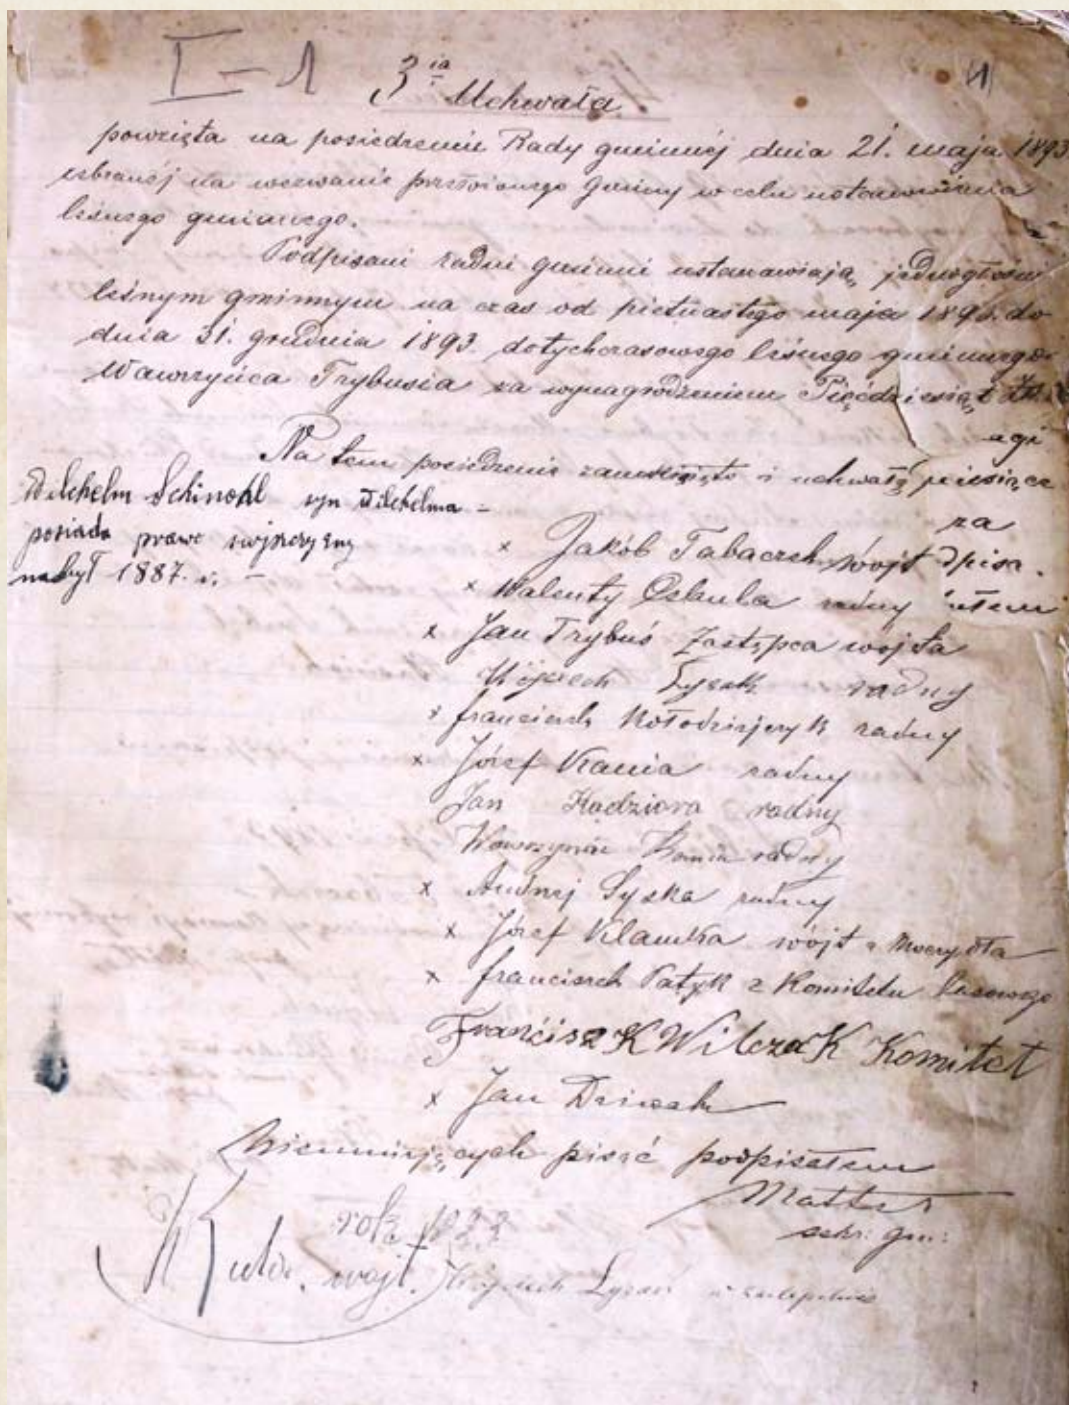 I-1
3 ia Uchwała
powzięta na posiedzeniu Rady gminnéj dnia 21. maja 1893
zebranéj na wezwanie przełożonego gminy w celu ustanowienia
leśnego gminnego.
Podpisani radni gminni ustanawiają jednogłośni
leśnym gminnym na czas od pietnastego maja 1893. do
dnia 31. grudnia 1893. dotychczasowego leśnego gminnego
Wawrzyńca Trybusia za wynagrodzeniem Pięćdziesiąt
Na tem posiedzenie zamknięto i uchwałę
Wilchelm Schinohl syn Wilchelma -
posiada prawo
nabył 1887. r. -
x Jakób Tabaczek wójt
x Walenty Cebula radny
x Jan Trybuś Zastępca wójta
Wójciech Łysak radny
x franciszek Kołodziejczyk radny
x Józef Kania radny
Jan Kądziora radny
radny
x Andrzej Łyska radny
x Józef Klamka wójt z Moczydła
x franciszek Patyk z Komitetu lasowego
Franćiszek Wilczak Komitet
x Jan
Nieumiejących pisać podpisałem
sekr: gm:
wojt.